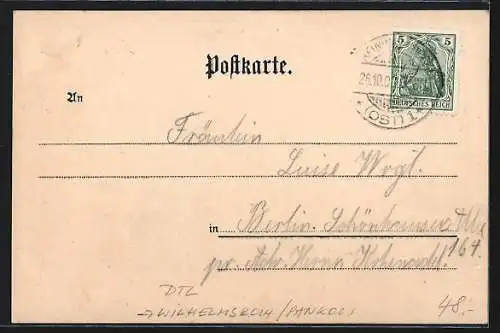 Postkarte.
5 5
26.10.0
DEUTSCHES REICH
(OST) 1
An
Fräulein
Luise
in Berlin. Schönhauser Allee
164.
pr. Adr. Herrn
DTL
→ WILHELMSRUH / PANKOW
48,-